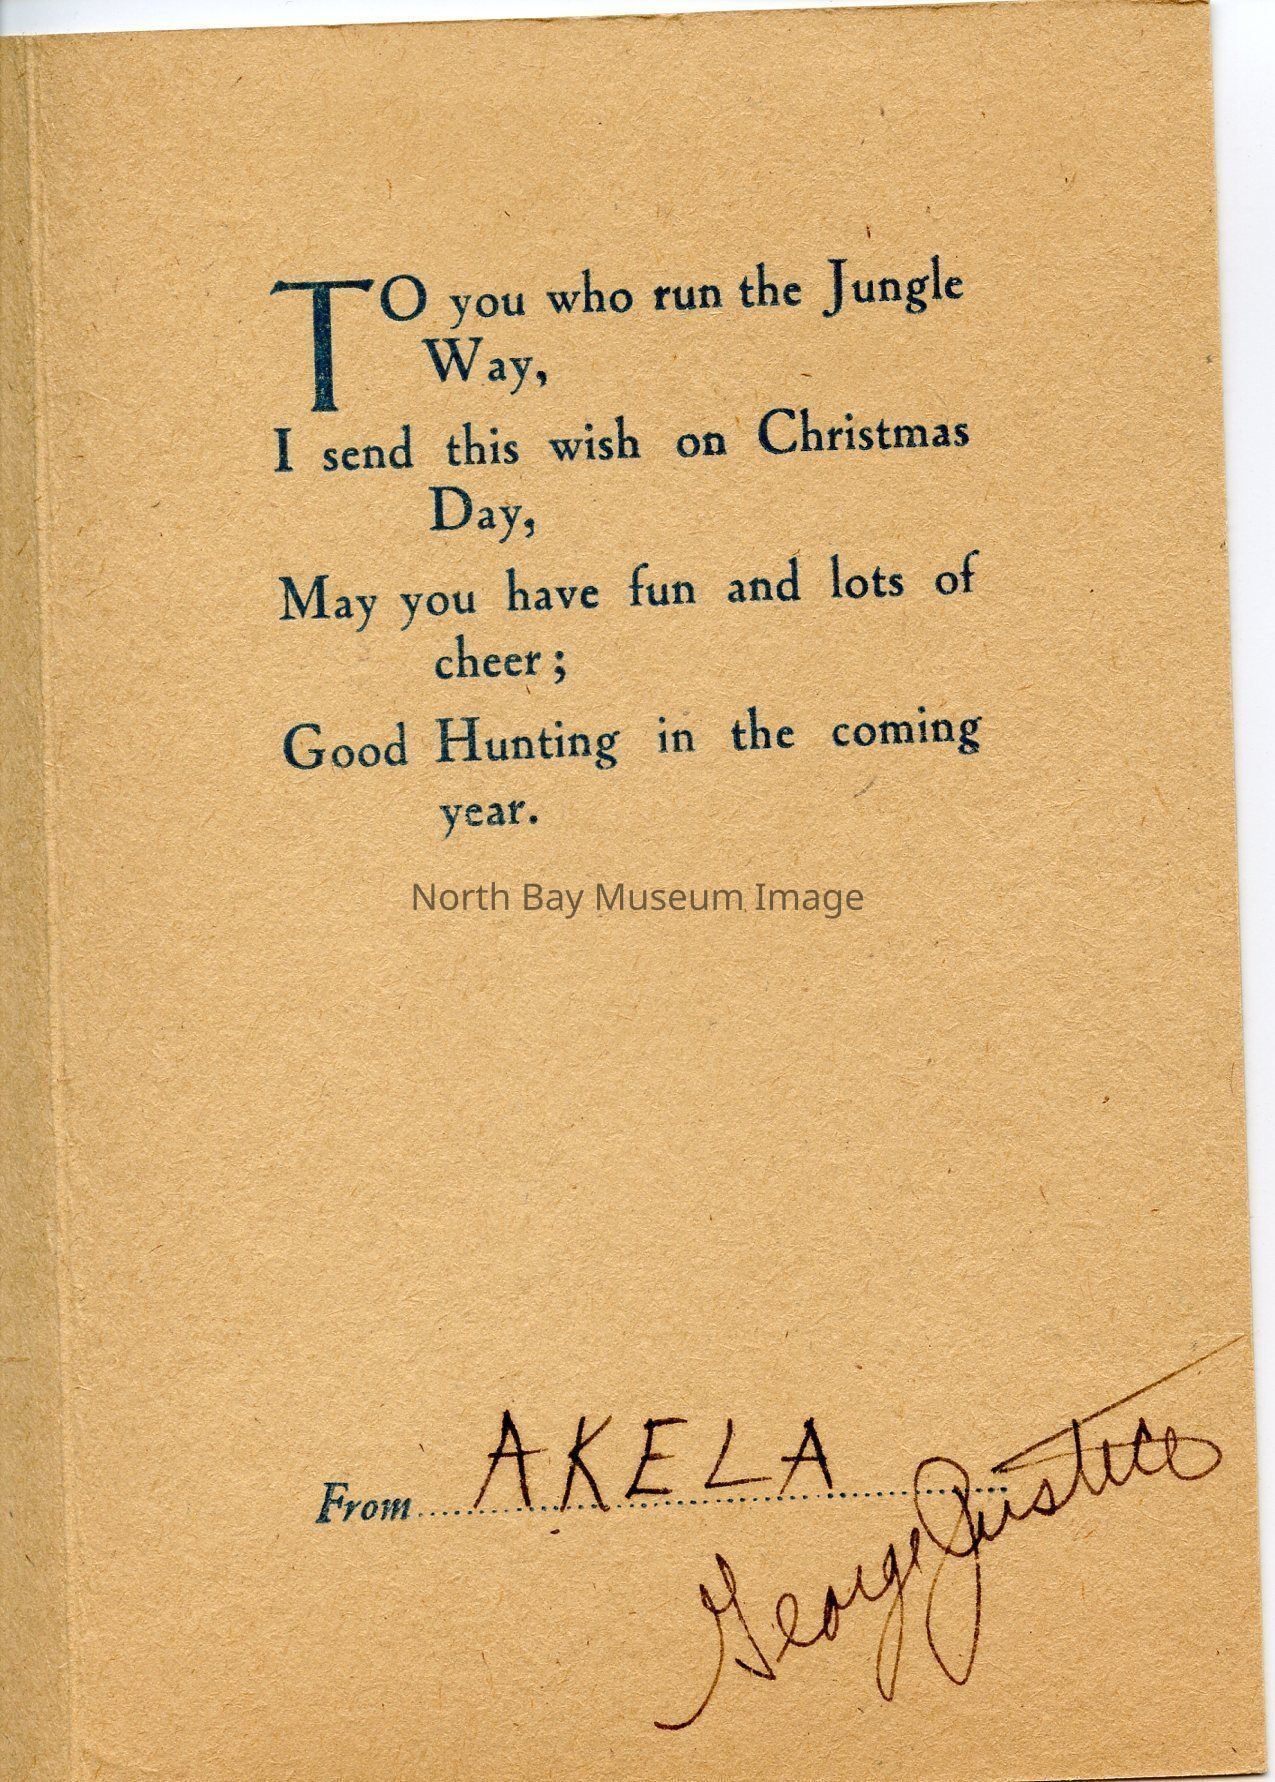 TO you who run the Jungle
Way,
I send this wish on Christmas
Day,
May you have fun and lots of
cheer;
Good Hunting in the coming
year.
North Bay Museum Image
From AKELA
George Justice